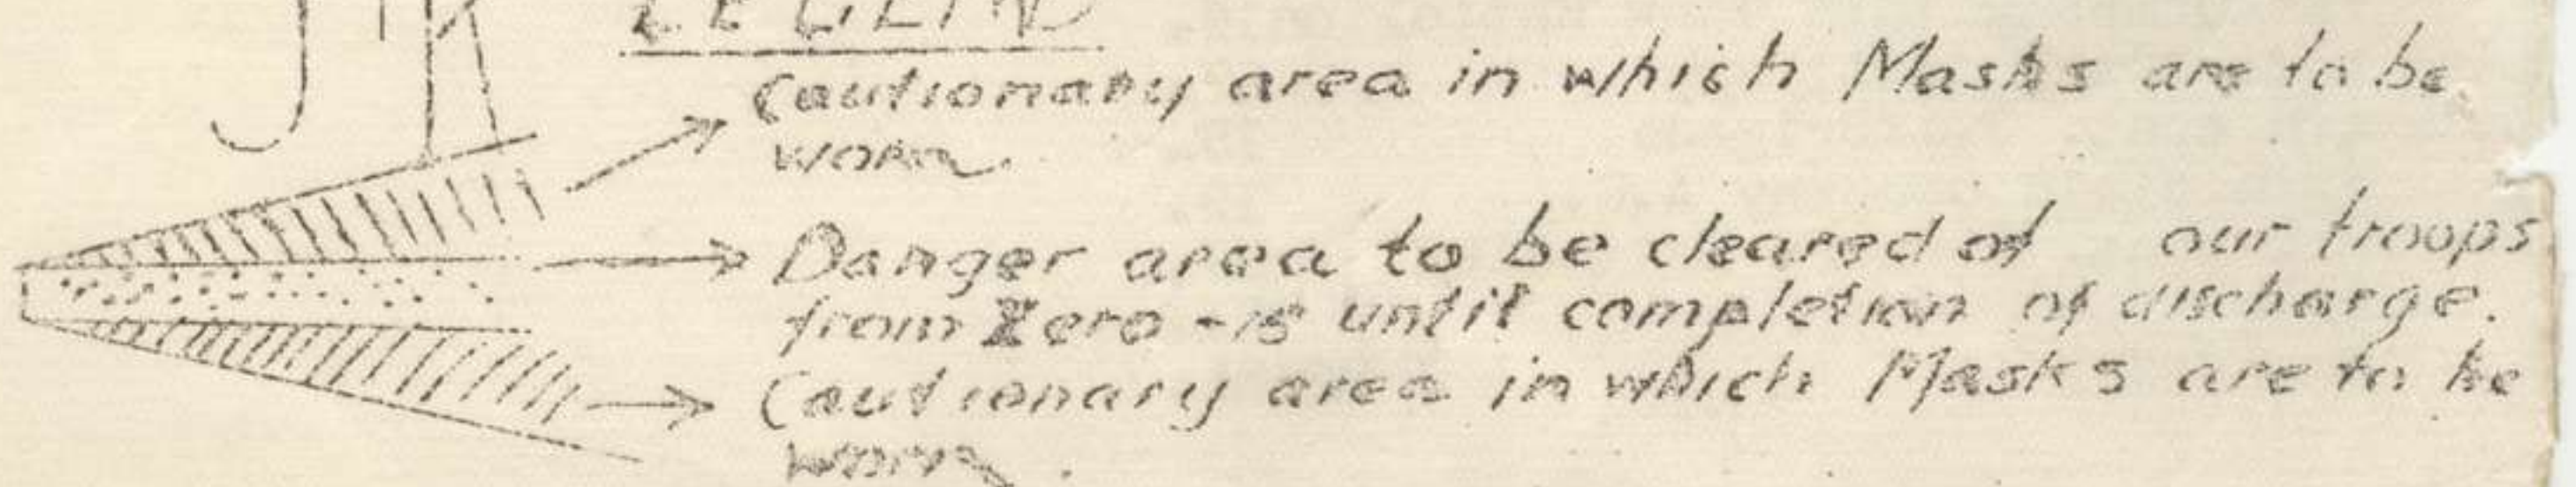 LEGEND
Cautionary area in which Masks are to be
worn.
Danger area to be cleared of our troops
from Zero -15 until completion of discharge.
Cautionary area in which Masks are to be
worn.